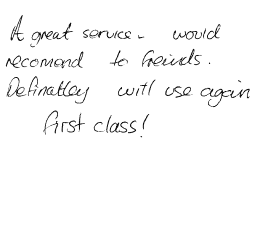 A great service - would
recomend to freinds.
Definatley will use again
first class!